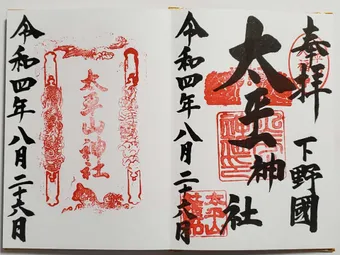 奉拝
下野國
太平山神社
令和四年八月二十六日
太平山神社
令和四年八月二十六日